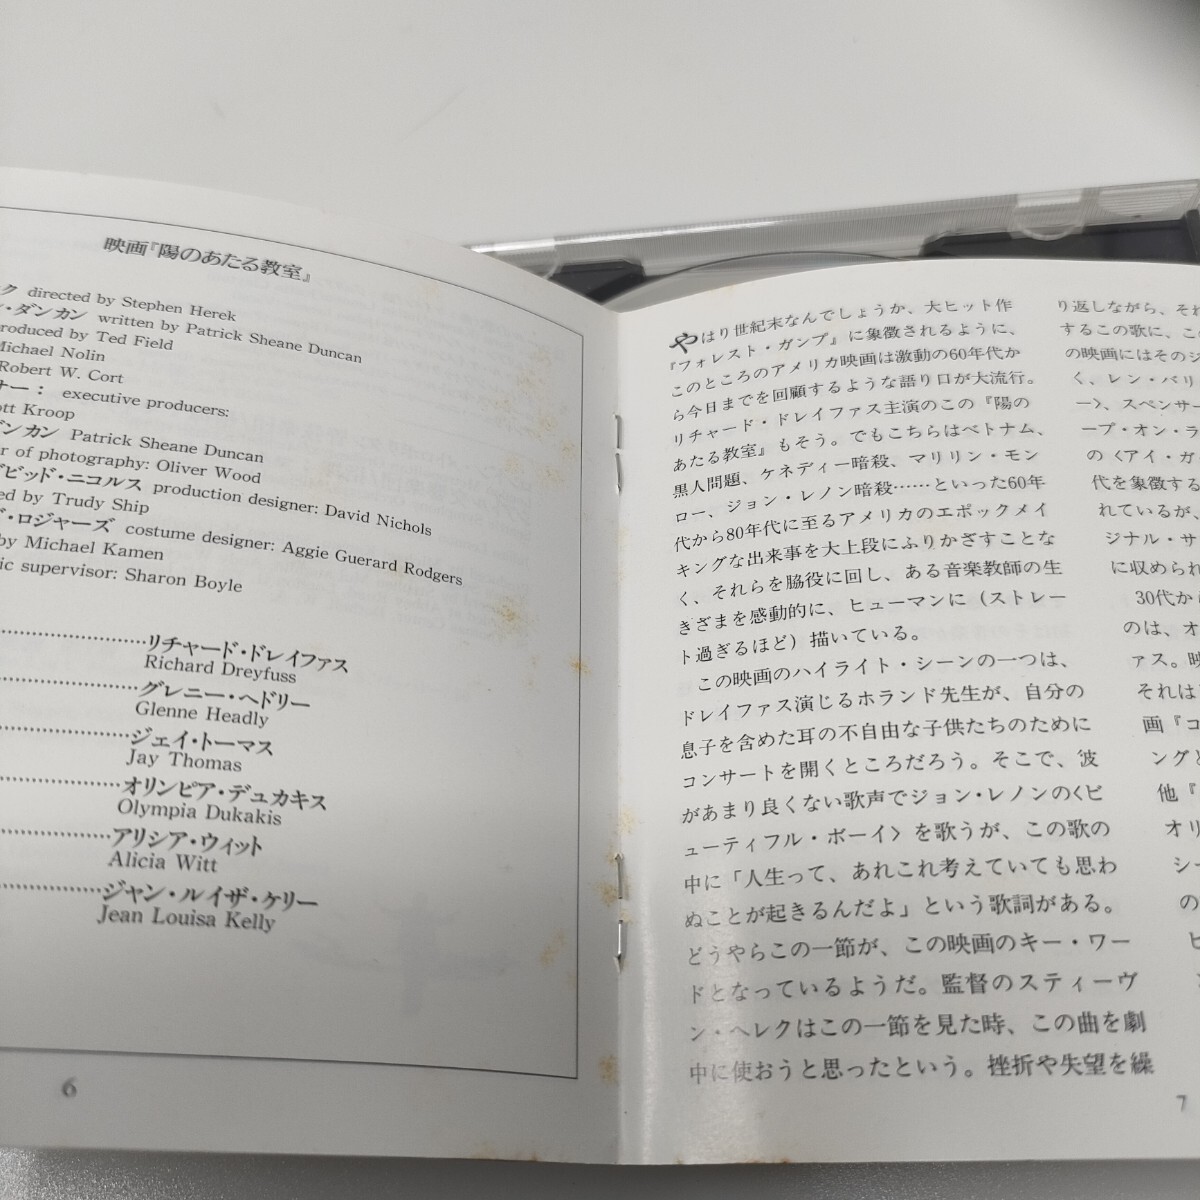 映画『陽のあたる教室』
ク directed by Stephen Herek
ン・ダンカン written by Patrick Sheane Duncan
produced by Ted Field
Michael Nolin
Robert W. Cort
ナー： executive producers:
ott Kroop
ダンカン Patrick Sheane Duncan
r of photography: Oliver Wood
デビッド・ニコルス production designer: David Nichols
ed by Trudy Ship
ド・ロジャーズ costume designer: Aggie Guerard Rodgers
by Michael Kamen
ic supervisor: Sharon Boyle
リチャード・ドレイファス
Richard Dreyfuss
グレニー・ヘドリー
Glenne Headly
ジェイ・トーマス
Jay Thomas
オリンピア・デュカキス
Olympia Dukakis
アリシア・ウィット
Alicia Witt
ジャン・ルイザ・ケリー
Jean Louisa Kelly
6
やはり世紀末なんでしょうか、大ヒット作
『フォレスト・ガンプ』に象徴されるように、
このところのアメリカ映画は激動の60年代か
ら今日までを回顧するような語り口が大流行。
リチャード・ドレイファス主演のこの『陽の
あたる教室』もそう。でもこちらはベトナム、
黒人問題、ケネディー暗殺、マリリン・モン
ロー、ジョン・レノン暗殺……といった60年
代から80年代に至るアメリカのエポックメイ
キングな出来事を大上段にふりかざすことな
く、それらを脇役に回し、ある音楽教師の生
きざまを感動的に、ヒューマンに（ストレー
ト過ぎるほど）描いている。
この映画のハイライト・シーンの一つは、
ドレイファス演じるホランド先生が、自分の
息子を含めた耳の不自由な子供たちのために
コンサートを開くところだろう。そこで、彼
があまり良くない歌声でジョン・レノンの〈ビ
ューティフル・ボーイ〉を歌うが、この歌の
中に「人生って、あれこれ考えていても思わ
ぬことが起きるんだよ」という歌詞がある。
どうやらこの一節が、この映画のキー・ワー
ドとなっているようだ。監督のスティーヴ
ン・ヘレクはこの一節を見た時、この曲を劇
中に使おうと思ったという。挫折や失望を繰
り返しながら、それ
するこの歌に、こ
の映画にはそのジ
く、レン・バリ
ー〉、スペンサー
ープ・オン・ラ
の〈アイ・ガ
代を象徴する
れているが、
ジナル・サ
に収められ
30代から
のは、オ
ァス。映
それは
画『コ
ングと
他『
オリ
シー
の
ヒ
7